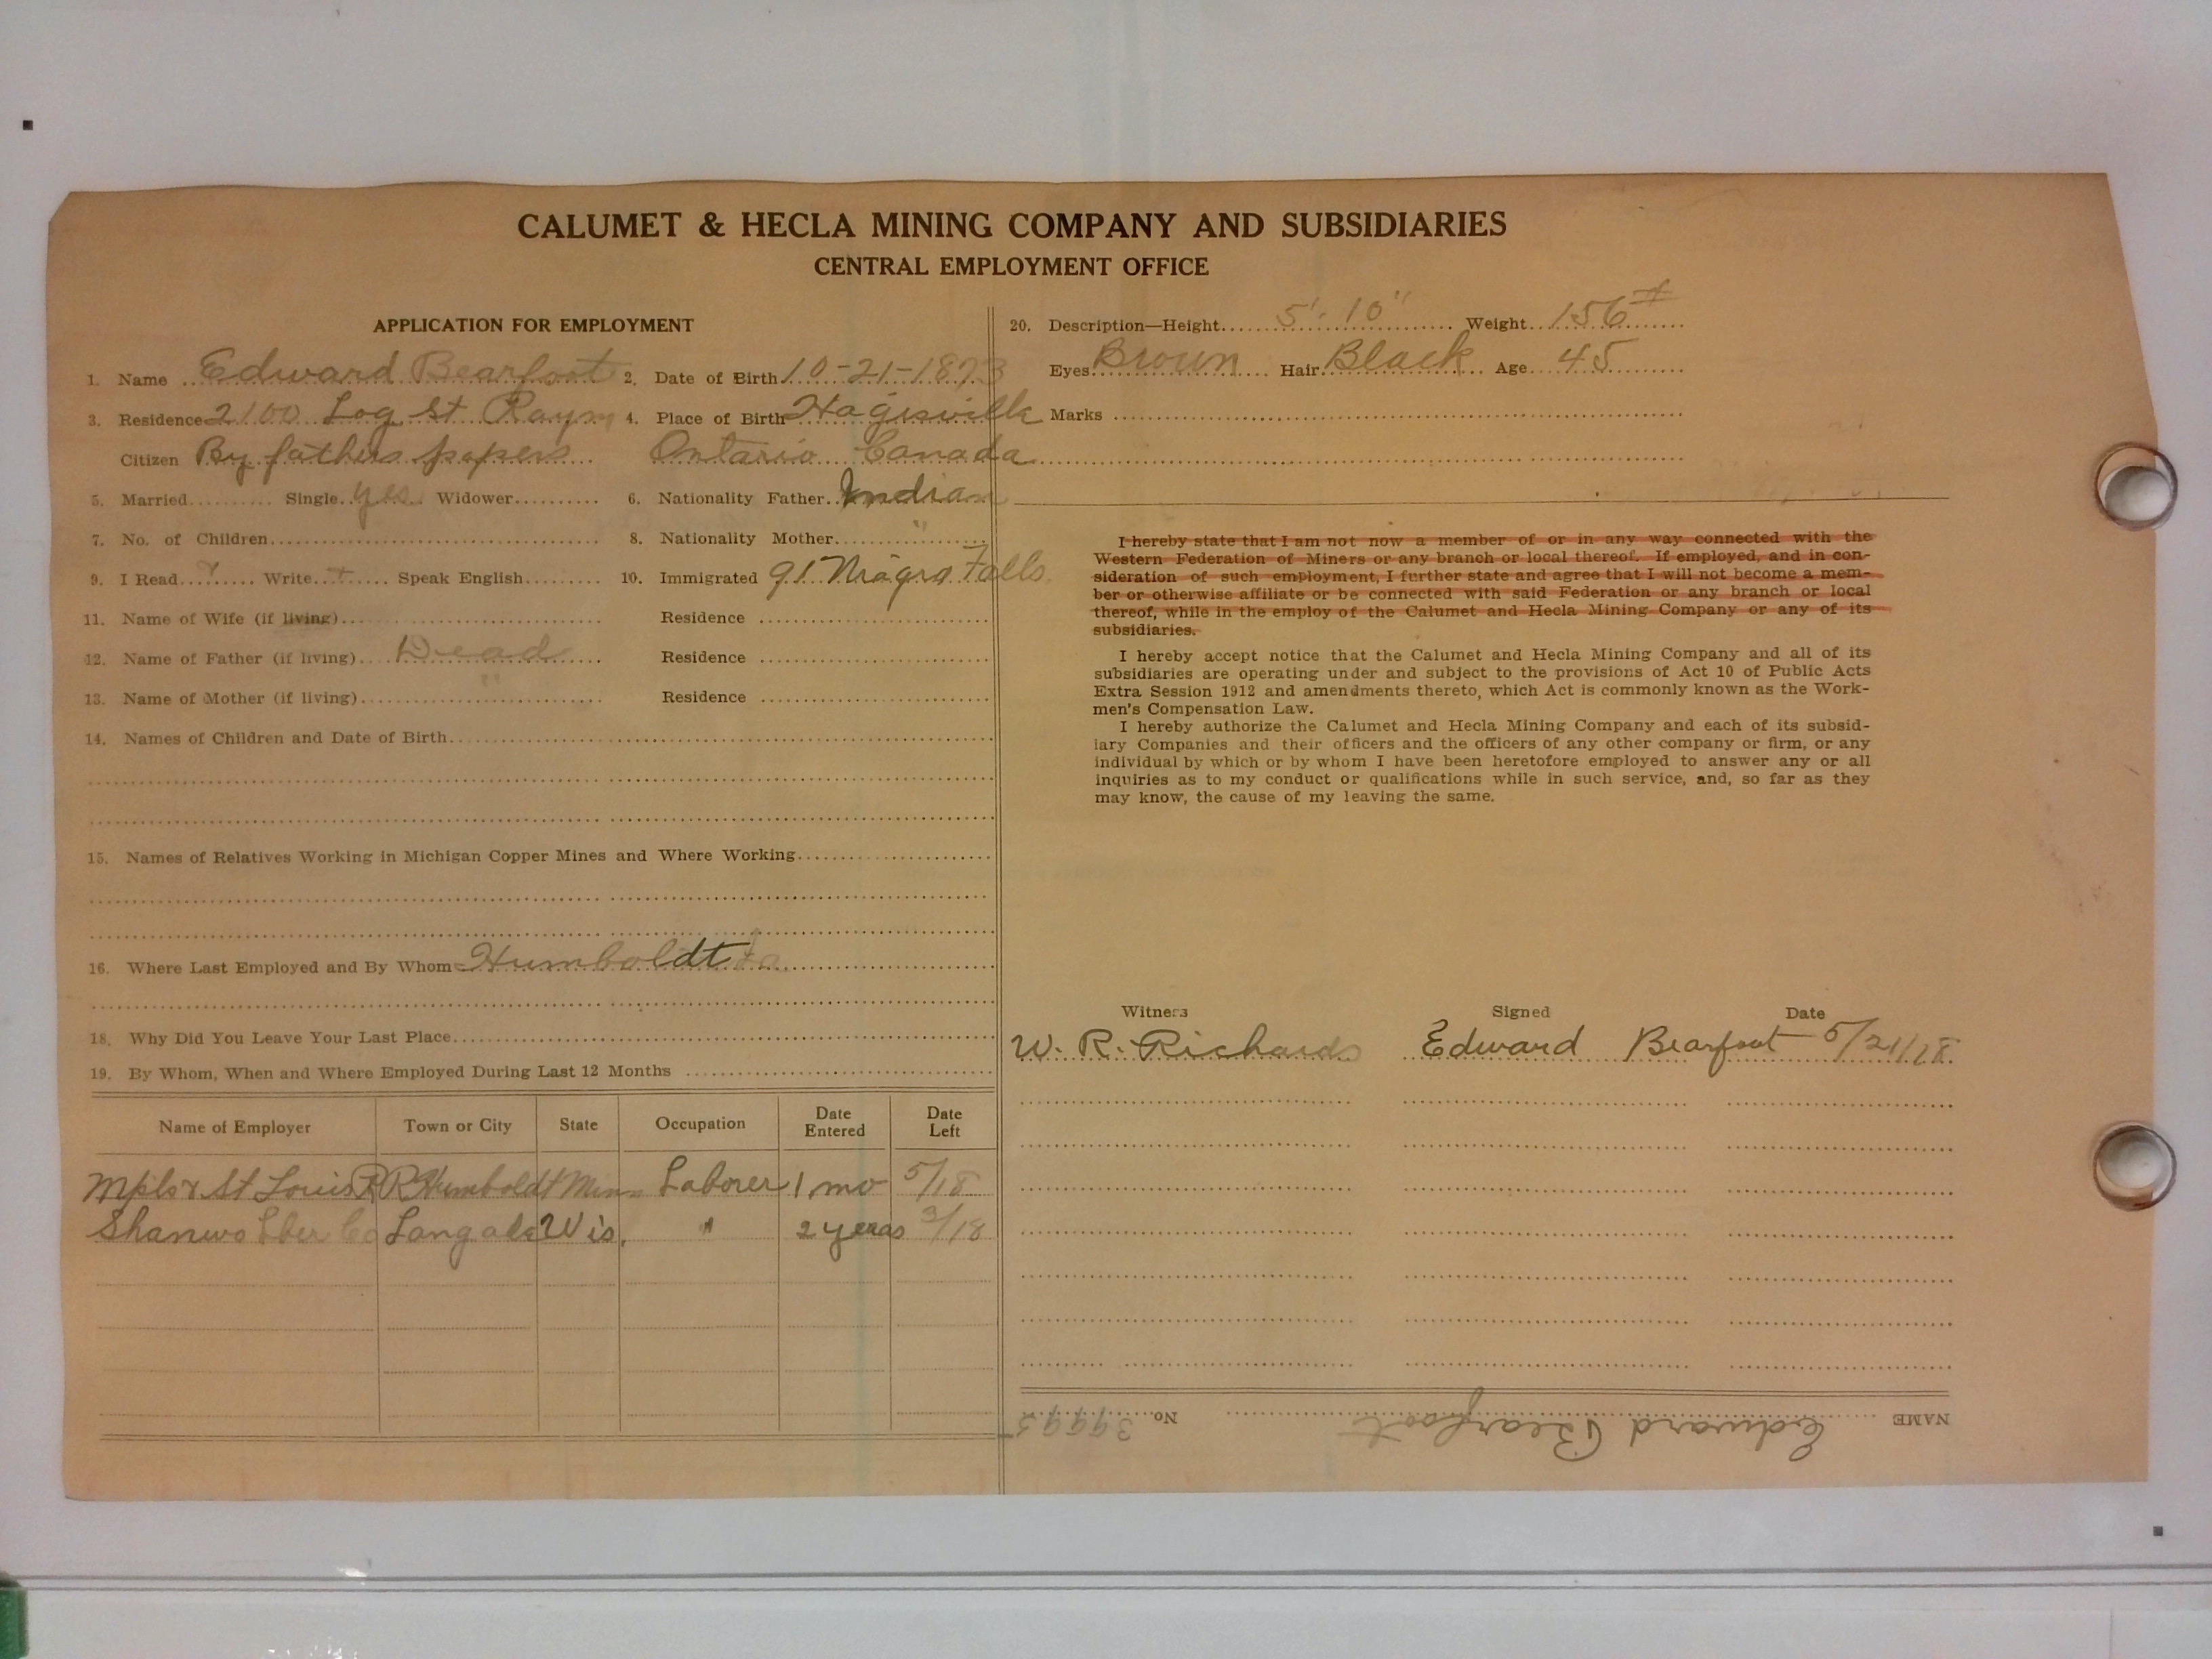 CALUMET & HECLA MINING COMPANY AND SUBSIDIARIES
CENTRAL EMPLOYMENT OFFICE
APPLICATION FOR EMPLOYMENT
1. Name Edward Bearfoot 2. Date of Birth 10-21-1873
3. Residence 2100 Log St Raym 4. Place of Birth Hagisville
Citizen By fathers papers Ontario Canada
5. Married Single yes Widower 6. Nationality Father Indian
7. No. of Children 8. Nationality Mother "
9. I Read Write Speak English 10. Immigrated 91 Niagra Falls
11. Name of Wife (if living) Residence
12. Name of Father (if living) Dead Residence
13. Name of Mother (if living) " Residence
14. Names of Children and Date of Birth
15. Names of Relatives Working in Michigan Copper Mines and Where Working
16. Where Last Employed and By Whom Humboldt
18. Why Did You Leave Your Last Place
19. By Whom, When and Where Employed During Last 12 Months
Name of Employer Town or City State Occupation Date Entered Date Left
Mpls & St Louis RR Humboldt Minn Laborer 1 mo 5/18
Shanwo Lber Co Langlade Wis. " 2 years 3/18
20. Description—Height 5'-10" Weight 156#
Eyes Brown Hair Black Age 45
Marks
I hereby state that I am not now a member of or in any way connected with the
Western Federation of Miners or any branch or local thereof. If employed, and in con-
sideration of such employment, I further state and agree that I will not become a mem-
ber or otherwise affiliate or be connected with said Federation or any branch or local
thereof, while in the employ of the Calumet and Hecla Mining Company or any of its
subsidiaries.
I hereby accept notice that the Calumet and Hecla Mining Company and all of its
subsidiaries are operating under and subject to the provisions of Act 10 of Public Acts
Extra Session 1912 and amendments thereto, which Act is commonly known as the Work-
men's Compensation Law.
I hereby authorize the Calumet and Hecla Mining Company and each of its subsid-
iary Companies and their officers and the officers of any other company or firm, or any
individual by which or by whom I have been heretofore employed to answer any or all
inquiries as to my conduct or qualifications while in such service, and, so far as they
may know, the cause of my leaving the same.
Witness Signed Date
W. R. Richards Edward Bearfoot 5/21/18
NAME Edward Bearfoot No. 39995